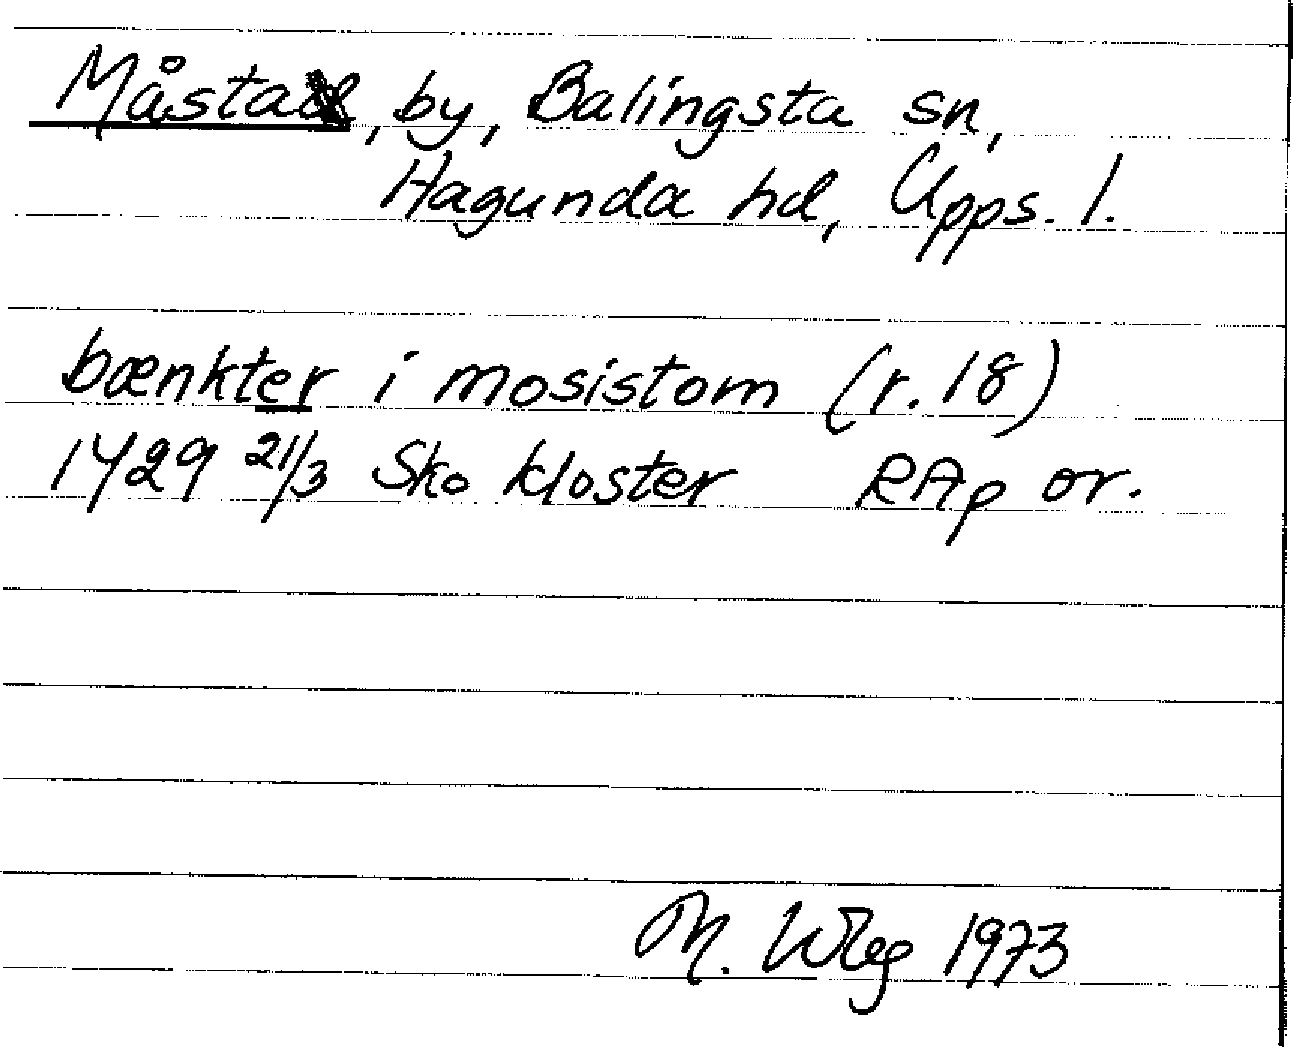 Måsta, by, Balingsta sn,
Hagunda hd, Upps. l.
bænkter i mosistom (r. 18)
1429 21/3 Sko kloster RAp or.
M. Wbg 1973